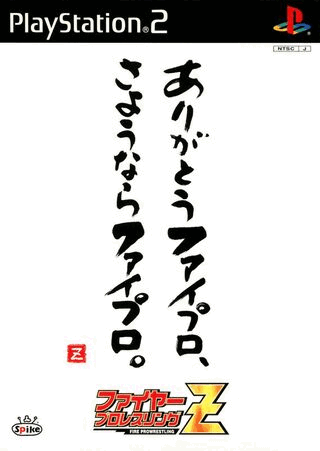 PlayStation®2
NTSC J
ありがとうファイプロ、
さようならファイプロ。
Z
ファイヤー
プロレスリング
Z
FIRE PROWRESTLING
Spike